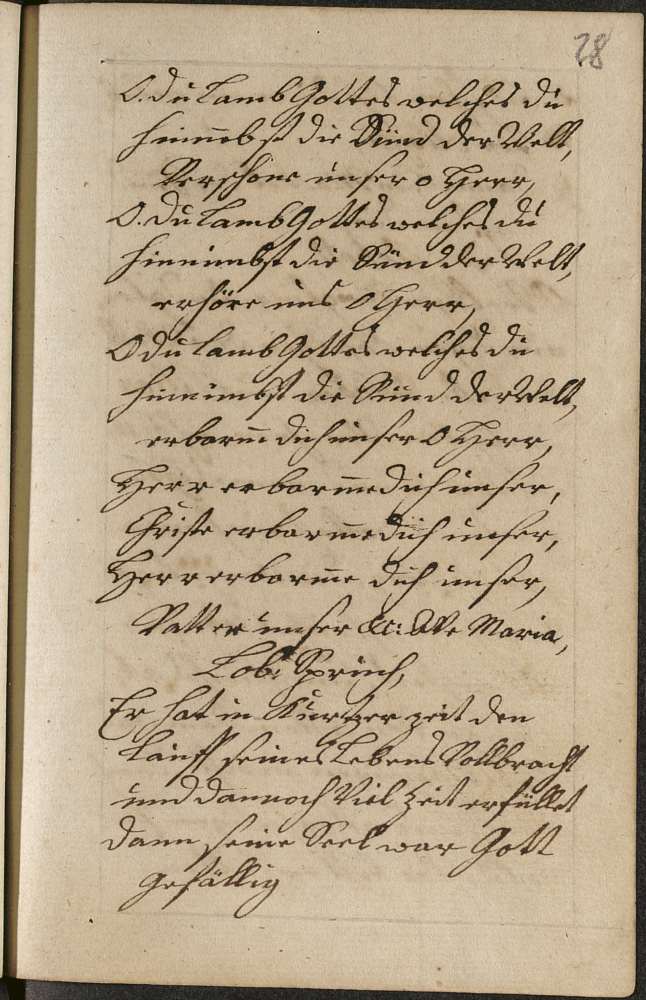 28
O. du Lamb Gottes welches du
hinnimbst die Sünd der Welt,
Verschone unser o Herr,
O. du Lamb Gottes welches du
hinnimbst die Sünd der Welt,
erhöre uns O Herr,
O du Lamb Gottes welches du
hinnimbst die Sünd der Welt,
erbarm̄ dich unser O Herr,
Herr erbarm̄e dich unser,
Christe erbarm̄e dich unser,
Herr erbarm̄e dich unser,
Vatter unser &c: Ave Maria,
Lob: Spruch,
Er hat in Kurtzer zeit den
lauff seines Lebens Vollbracht
und dannoch Viel Zeit erfüllet
dann seine Seel war Gott
gefällig